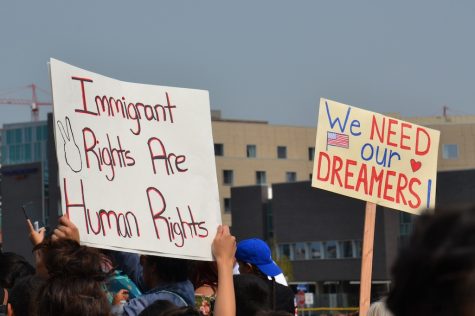 Immigrant
Rights Are
Human Rights
We NEED
our
DREAMERS!